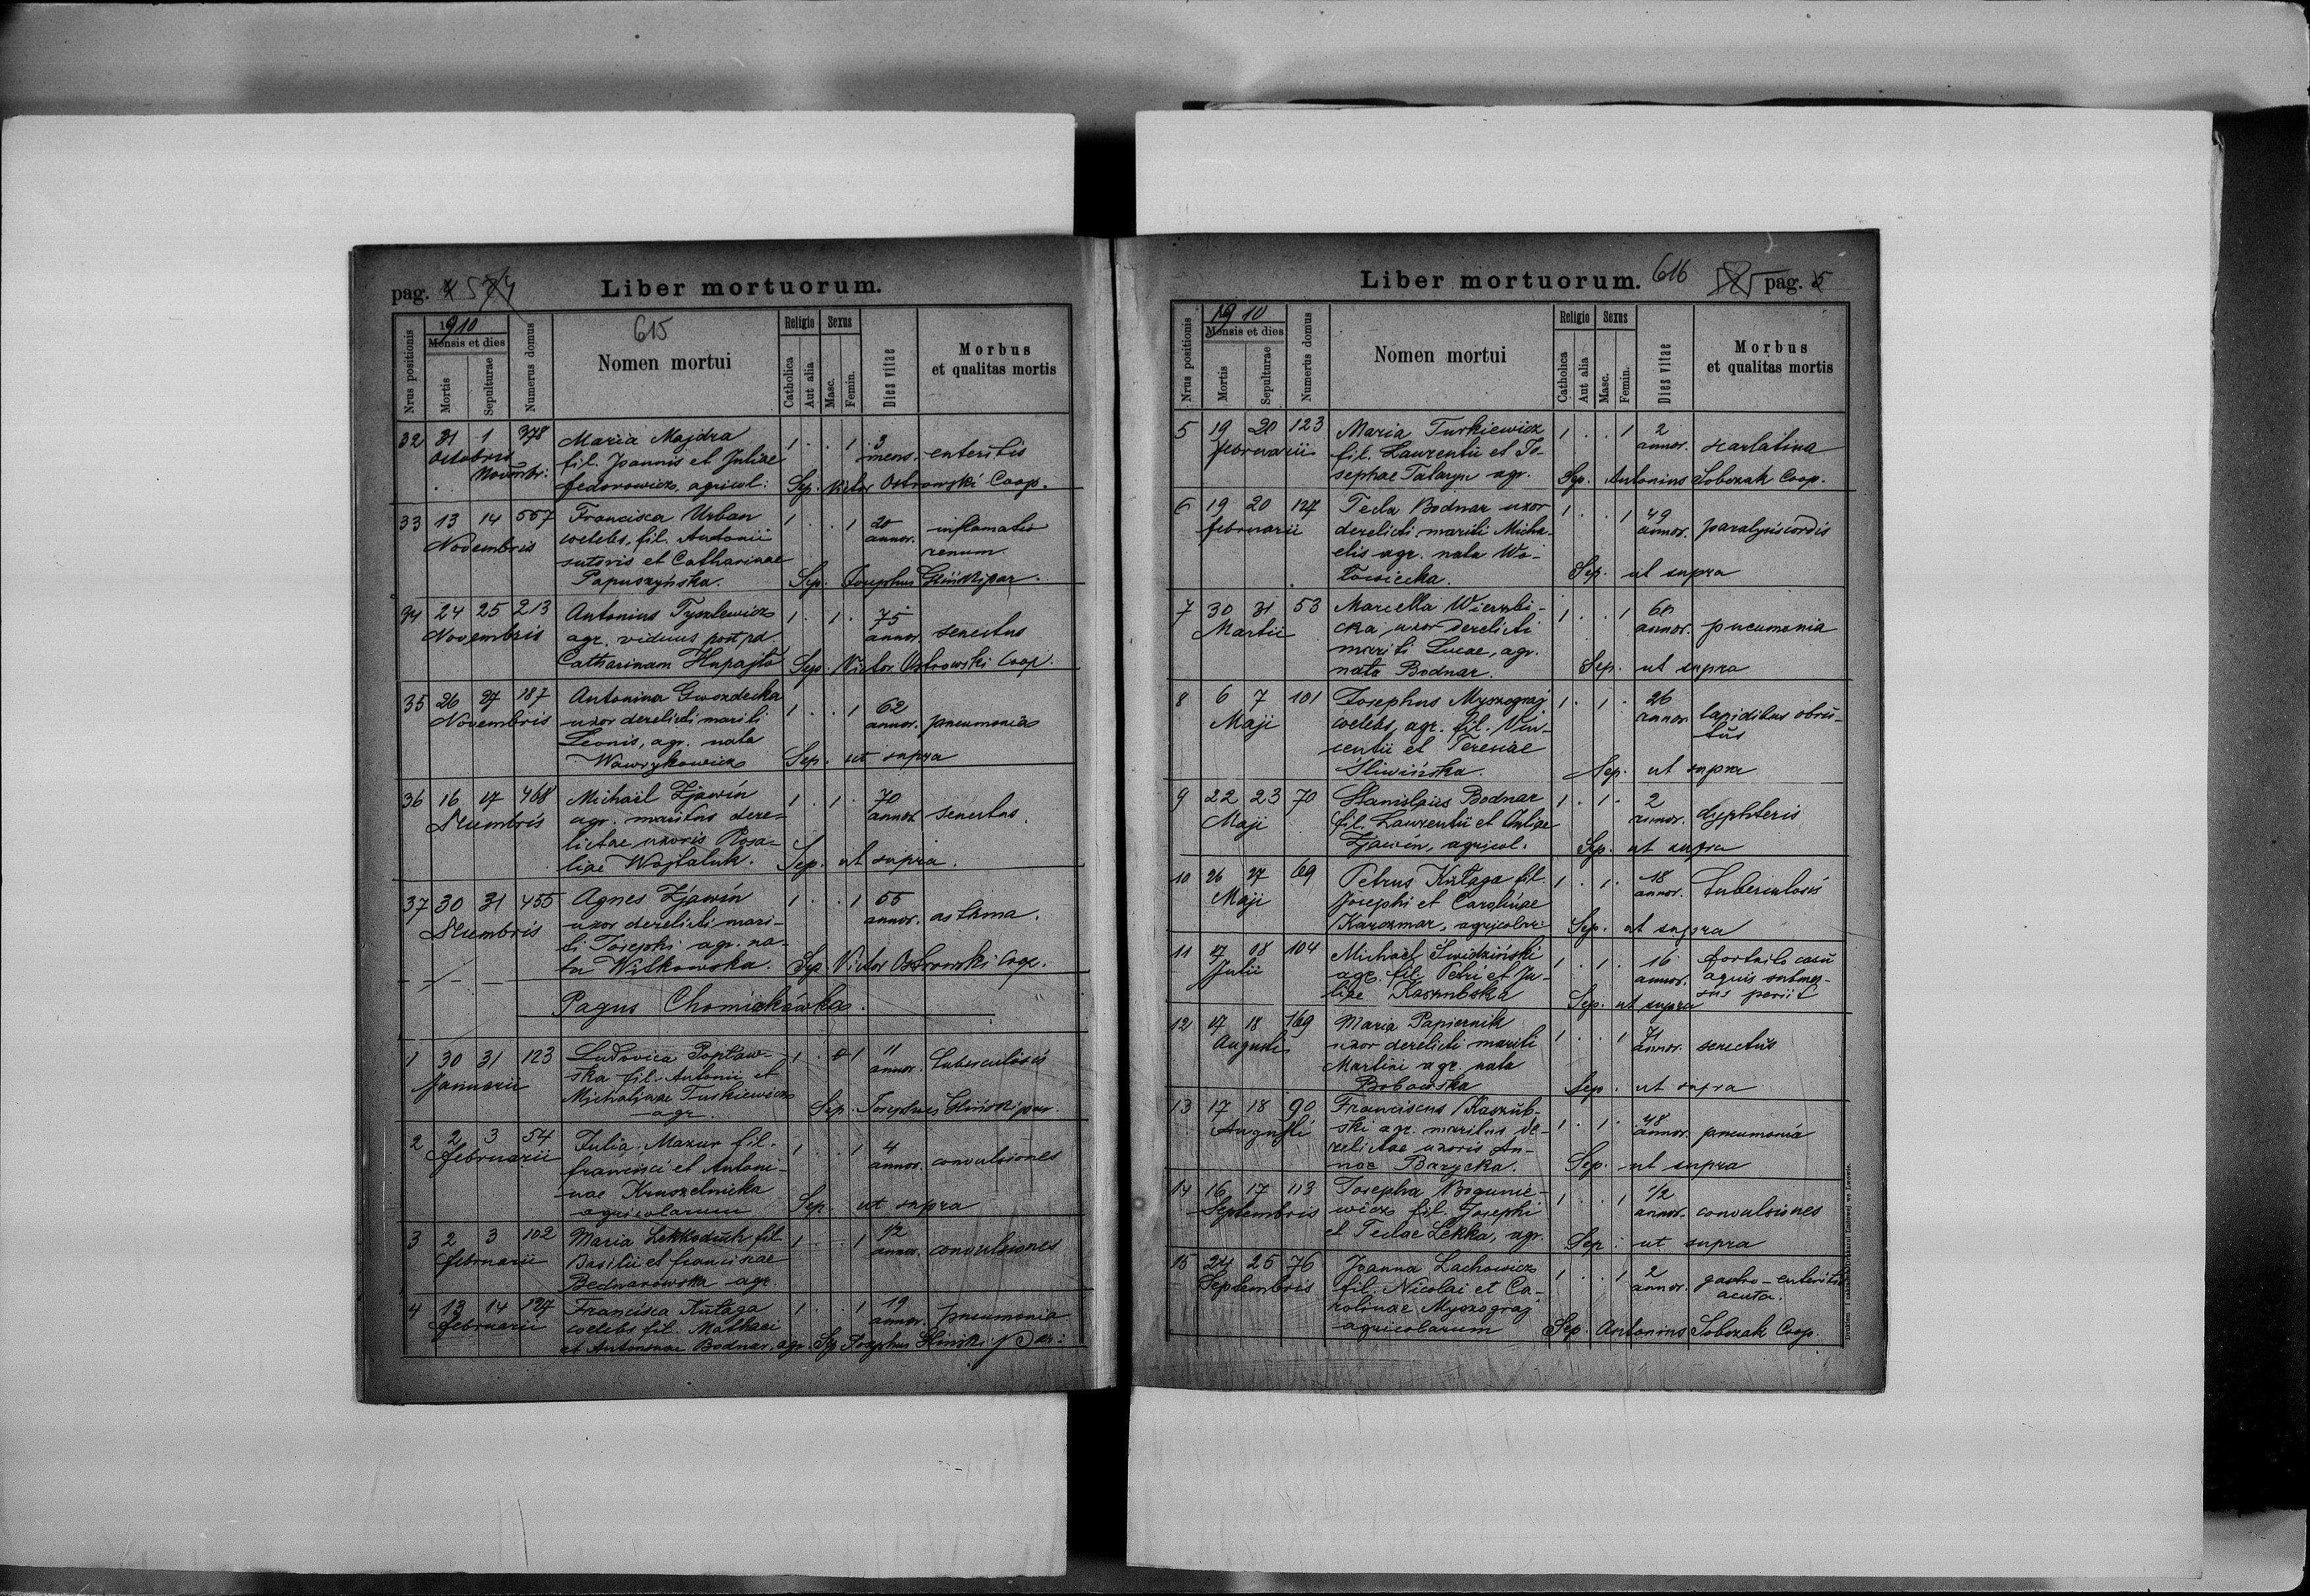 pag. 4 574
Liber mortuorum.
615
Nrus positionis
1910
Mensis et dies
Mortis
Sepulturae
Numerus domus
Nomen mortui
Religio
Catholica
Aut alia
Sexus
Masc.
Femin.
Dies vitae
Morbus
et qualitas mortis
32 31 1 378 Maria Majdra 1 . . 1 3
Octobris fil. Joannis et Juliae mens. enteritis
Novembr: Fedorowicz, agricol: Sep. Victor Ostrowski Coop.
33 13 14 557 Francisca Urban 1 . . 1 20 inflamatio
Novembris coelebs, fil. Antonii annor. renum
sutoris et Catharinae
Papuszyńska. Sep. Josephus Gliński par.
34 24 25 213 Antonius Tyszlewicz 1 . 1 . 75
Novembris agr. viduus post pd. annor. senectus
Catharinam Hupajło Sep. Victor Ostrowski Coop.
35 26 27 187 Antonina Gwozdecka 1 . . 1 62
Novembris uxor derelicti mariti annor. pneumonia
Leonis, agr. nata
Wawrykowicz Sep. ut supra
36 16 17 468 Michaël Zjawin 1 . 1 . 70
Decembris agr. maritus dere- annor. senectus.
lictae uxoris Rosa-
liae Wojtaluk. Sep. ut supra.
37 30 31 455 Agnes Zjawin 1 . . 1 55
Decembris uxor derelicti mari- annor. asthma.
ti Josephi agr. na-
ta Witkowska. Sep. Victor Ostrowski Coop.
Pagus Chomiakówka.
1 30 31 123 Ludovica Popław- 1 . 1 11
Januarii ska fil. Antonii et annor. tuberculosis
Michalinae Turkiewicz
agr. Sep. Josephus Gliński par.
2 2 3 54 Julia Mazur fil. 1 . . 1 4
Februarii Francisci et Antoni- annor. convulsiones
nae Kruszelnicka
agricolarum Sep. ut supra
3 2 3 102 Maria Lekkoduch fil 1 . . 1 1/2
Februarii Basilii et Franciscae annor. convulsiones
Bednarowska agr.
4 13 14 127 Francisca Kutaga 1 . . 1 19
Februarii coelebs fil. Mathaei annor. pneumonia
et Antoninae Bodnar, agr. Sep Josephus Gliński par:
Liber mortuorum. 616 pag. 5
Nrus positionis
1910
Mensis et dies
Mortis
Sepulturae
Numerus domus
Nomen mortui
Religio
Catholica
Aut alia
Sexus
Masc.
Femin.
Dies vitae
Morbus
et qualitas mortis
5 19 20 123 Maria Turkiewicz 1 . . 1 2
Februarii fil. Laurentii et Jo- annor. scarlatina
sephae Talaryn agr. Sep. Antonius Sobczak Coop.
6 19 20 127 Tecla Bodnar uxor 1 . . 1 49
Februarii derelicti mariti Micha- annor. paralysis cordis
elis agr. nata Wo-
łowiecka. Sep. ut supra
7 30 31 53 Marcella Wierzbi- 1 . . 1 60
Martii cka, uxor derelicti annor. pneumonia
mariti Lucae, agr.
nata Bodnar. Sep. ut supra
8 6 7 101 Josephus Myszograj 1 . 1 . 26
Maji coelebs, agr. fil. Vin- annor. lapidibus obru-
centii et Teresiae tus
Śliwińska. Sep. ut supra
9 22 23 70 Stanislaus Bodnar 1 . 1 . 2
Maji fil. Laurentii et Juliae annor. dyphteris
Zjawin, agricol. Sep. ut supra
10 26 27 69 Petrus Kutaga fil. 1 . 1 . 18
Maji Josephi et Carolinae annor. tuberculosis
Karczmar, agricolar: Sep. ut supra
11 17 18 104 Michaël Swidziński 1 . 1 . 16 fortuito casu
Julii agr. fil. Petri et Ju- annor. aquis submer-
liae Kaszubska Sep. ut supra sus periit
12 17 18 169 Maria Papiernik 1 . . 1 71
Augusti uxor derelicti mariti annor. senectus
Martini agr. nata
Bobowska Sep. ut supra
13 17 18 90 Franciscus Kaszub- 1 . 1 . 48
Augusti ski agr. maritus de- annor. pneumonia
relictae uxoris An-
nae Barycka. Sep. ut supra
14 16 17 113 Josepha Bogunie- 1 . . 1 1/2
Septembris wicz fil. Josephi annor. convulsiones
et Teclae Lekka, agr. Sep: ut supra
15 24 25 76 Joanna Lachowicz 1 . . 1 2
Septembris fil. Nicolai et Ca- annor. gastro-enteritis
rolinae Myszograj acuta.
agricolarum Sep. Antonius Sobczak Coop.